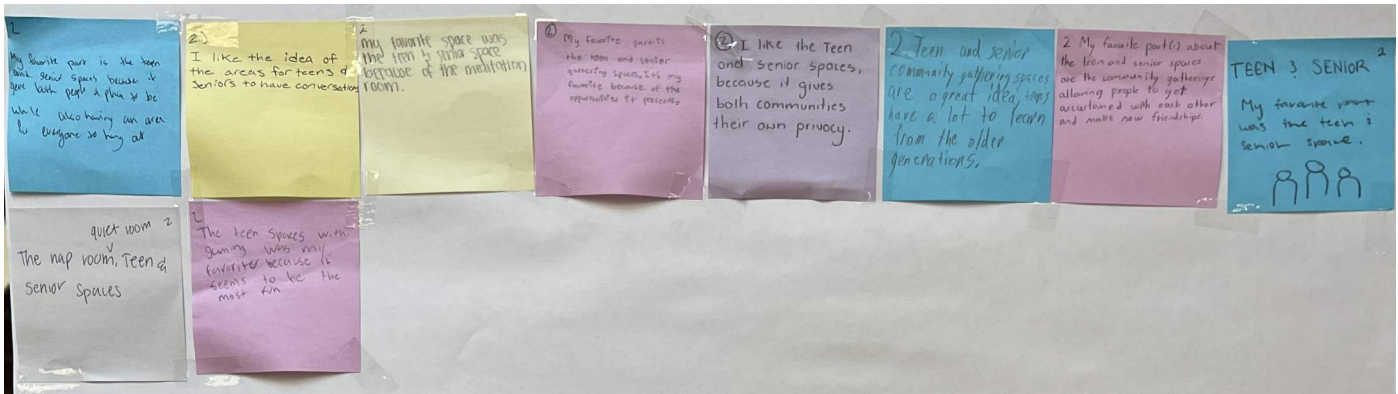 2
My favorite part is the teen
and senior spaces because it
gave both people a place to be
while also having an area
for everyone to hang out
2)
I like the idea of
the areas for teens &
seniors to have conversations
2
my favorite space was
the teen & senior space
because of the meditation
room.
2
My favorite part is
the teen and senior
gathering spaces, its my
favorite because of the
opportunities it presents.
2 I like the Teen
and senior spaces,
because it gives
both communities
their own privacy.
2 Teen and senior
community gathering spaces
are a great idea, teens
have a lot to learn
from the older
generations.
2 My favorite part(s) about
the teen and senior spaces
are the community gatherings
allowing people to get
accustomed with each other
and make new friendships.
2
TEEN & SENIOR
My favorite
was the teen &
senior space.
quiet room 2
The nap room, Teen &
senior spaces
2
The teen spaces with
gaming was my
favorite because it
seems to be the
most fun